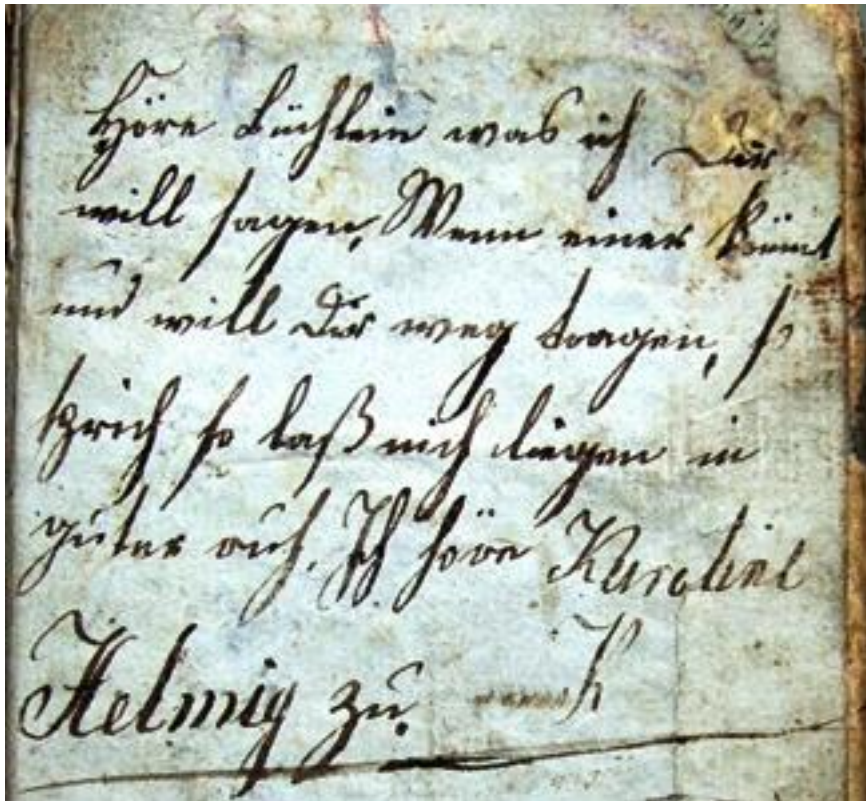 Höre Büchlein was ich Dir
will sagen, Wenn einer kömt
und will Dir weg tragen, so
sprich so laß mich liegen in
guter ruh. Ich höre Karoline
Helmig zu.